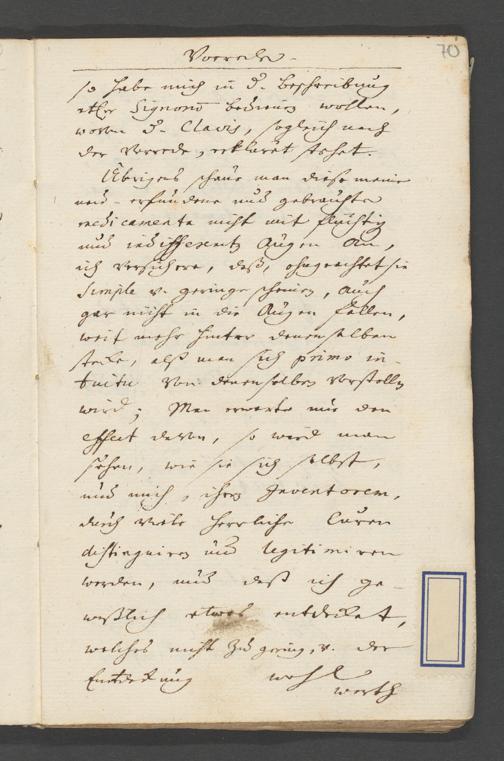 Vorrede.
70
so habe mich in d. beschreibung
etlr Signorū bedienen wollen,
wovon d. Clavis, sogleich nach
der Vorrede, erkläret stehet.
Übrigens schaue man diese meine
neu-erfundene und gebrauchte
medicamenta nicht mit flüchtig
und indifferenten Augen an,
ich versichere, daß, ohngeachtet sie
Simple u. geringe scheinen, auch
gar nicht in die Augen fallen,
weit mehr hinter denenselben
stecke, alß man sich primo in-
tuitu von denenselben vorstellen
wird; Man erwarte nur den
effect davon, so wird man
sehen, wie sie sich selbst,
und mich, ihren Inventorem,
durch viele herrliche Curen
distinguiren und legitimiren
werden, und daß ich ge-
wißlich etwas entdecket,
welches nicht zu gering, u. der
Entdeckung wohl
werth